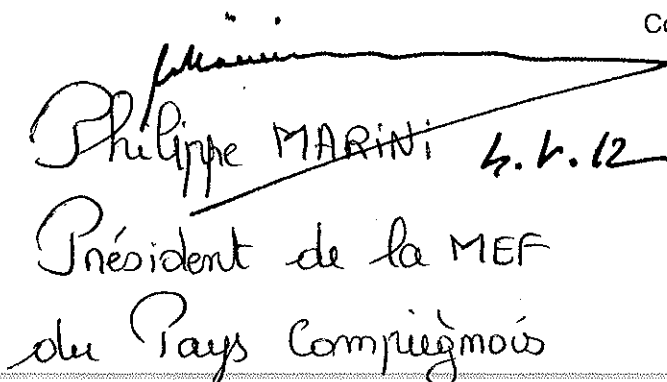 Co
Philippe MARINi 4.V.12
Président de la MEF
du Pays Compiégnois